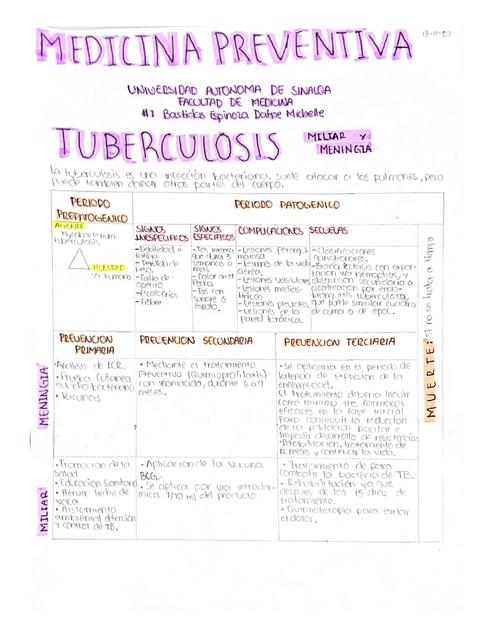 MEDICINA PREVENTIVA
UNIVERSIDAD AUTONOMA DE SINALOA
FACULTAD DE MEDICINA
#1 Bastidas Espinoza Dafne Michelle
TUBERCULOSIS
MILIAR Y
MENINGIA
La tuberculosis es una infección bacteriana, suele atacar a los pulmones, pero
puede tambien dañar otras partes del cuerpo.
PERIODO
PREPATOGENICO
PERIODO PATOGENICO
AGENTE
Mycobacterium
tuberculosis
HUESPED
ser humano
SIGNOS
INESPECIFICOS
- Debilidad o
fatiga
- Perdida de
peso
- Falta de
apetito
- Escalofrios
- Fiebre
SIGNOS
ESPECIFICOS
- Tos intensa
que dura 3
semanas o
mas
- Dolor en el
pecho
- Tos con
sangre o
esputo
COMPLICACIONES
- Lesiones
- Lesiones de la vida
aérea
- Lesiones vasculares
- Lesiones medias-
tinicas
- Lesiones pleurales
- Lesiones de la
pared toracica
SECUELAS
- Bronquiectasis con expec-
toración y/o hemoptisis, y
obstruccion secundaria a
cicatrización por endo-
bronquitis tuberculosa,
que puede simular cuadro
de asma o de epoc.
MUERTE: si no se trata a tiempo
PREVENCION
PRIMARIA
PREVENCION SECUNDARIA
PREVENCION TERCIARIA
MENINGIA
- Analisis de LCR.
• Prueba cutanea,
estudio bacteriano
• Vacunas
• Mediante el tratamiento
Preventivo (Quimioprofilaxis)
con isoniacida, durante 6 o 9
meses.
• Se aplicaria en el periodo de
latencia de expresion de la
enfermedad.
El tratamiento deberia incluir
como minimo tres farmacos
eficaces en la fase inicial
para conseguir la reduccion
de la poblacion bacilar e
impedir desarrollo de resistencias
• Rehabilitacion, tratamiento de
12 meses y continuar la vida.
MILIAR
• Promocion de la
salud
• Educacion sanitaria
• Hervir leche de
vaca
• Aislamiento
ambiental, detención
y control de TB.
• Aplicacion de la vacuna
BCG.
• Se aplica por via intrader-
mica 1/10 ml del producto.
• Tratamiento de para
combatir la bacteria de TB.
• Rehabilitación ya que
despues de los 15 dias de
tratamiento.
• Quimioterapia para evitar
el dolor.